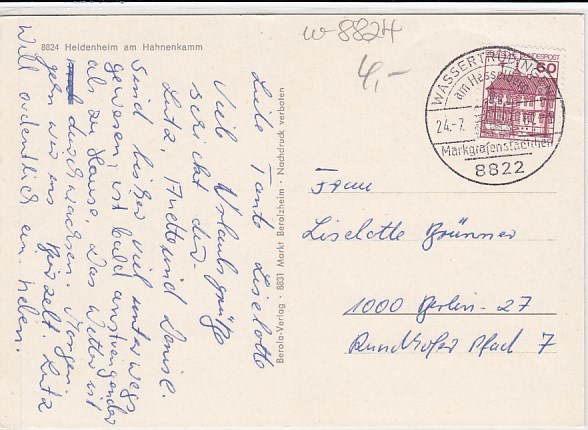 8824 Heidenheim am Hahnenkamm
w-8824
4,-
WASSERTRÜDINGEN
am Hesselberg
24.-7.
Markgrafenstädtchen
8822
DEUTSCHE BUNDESPOST
60
Liebe Tante Liselotte
Viel Urlaubsgrüße
schickt dir
Lutz, Anette und Denise.
Sind bisher viel unterwegs
gewesen, ist bald anstrengender
als zu Hause. Das Wetter ist
durchwachsen. Morgen
gehn wir ins Lutz
Will ordentlich an. heben.
Berola-Verlag · 8831 Markt Berolzheim · Nachdruck verboten
Frau
Liselotte Brünner
1000 Berlin - 27
Rundhofer Pfad 7